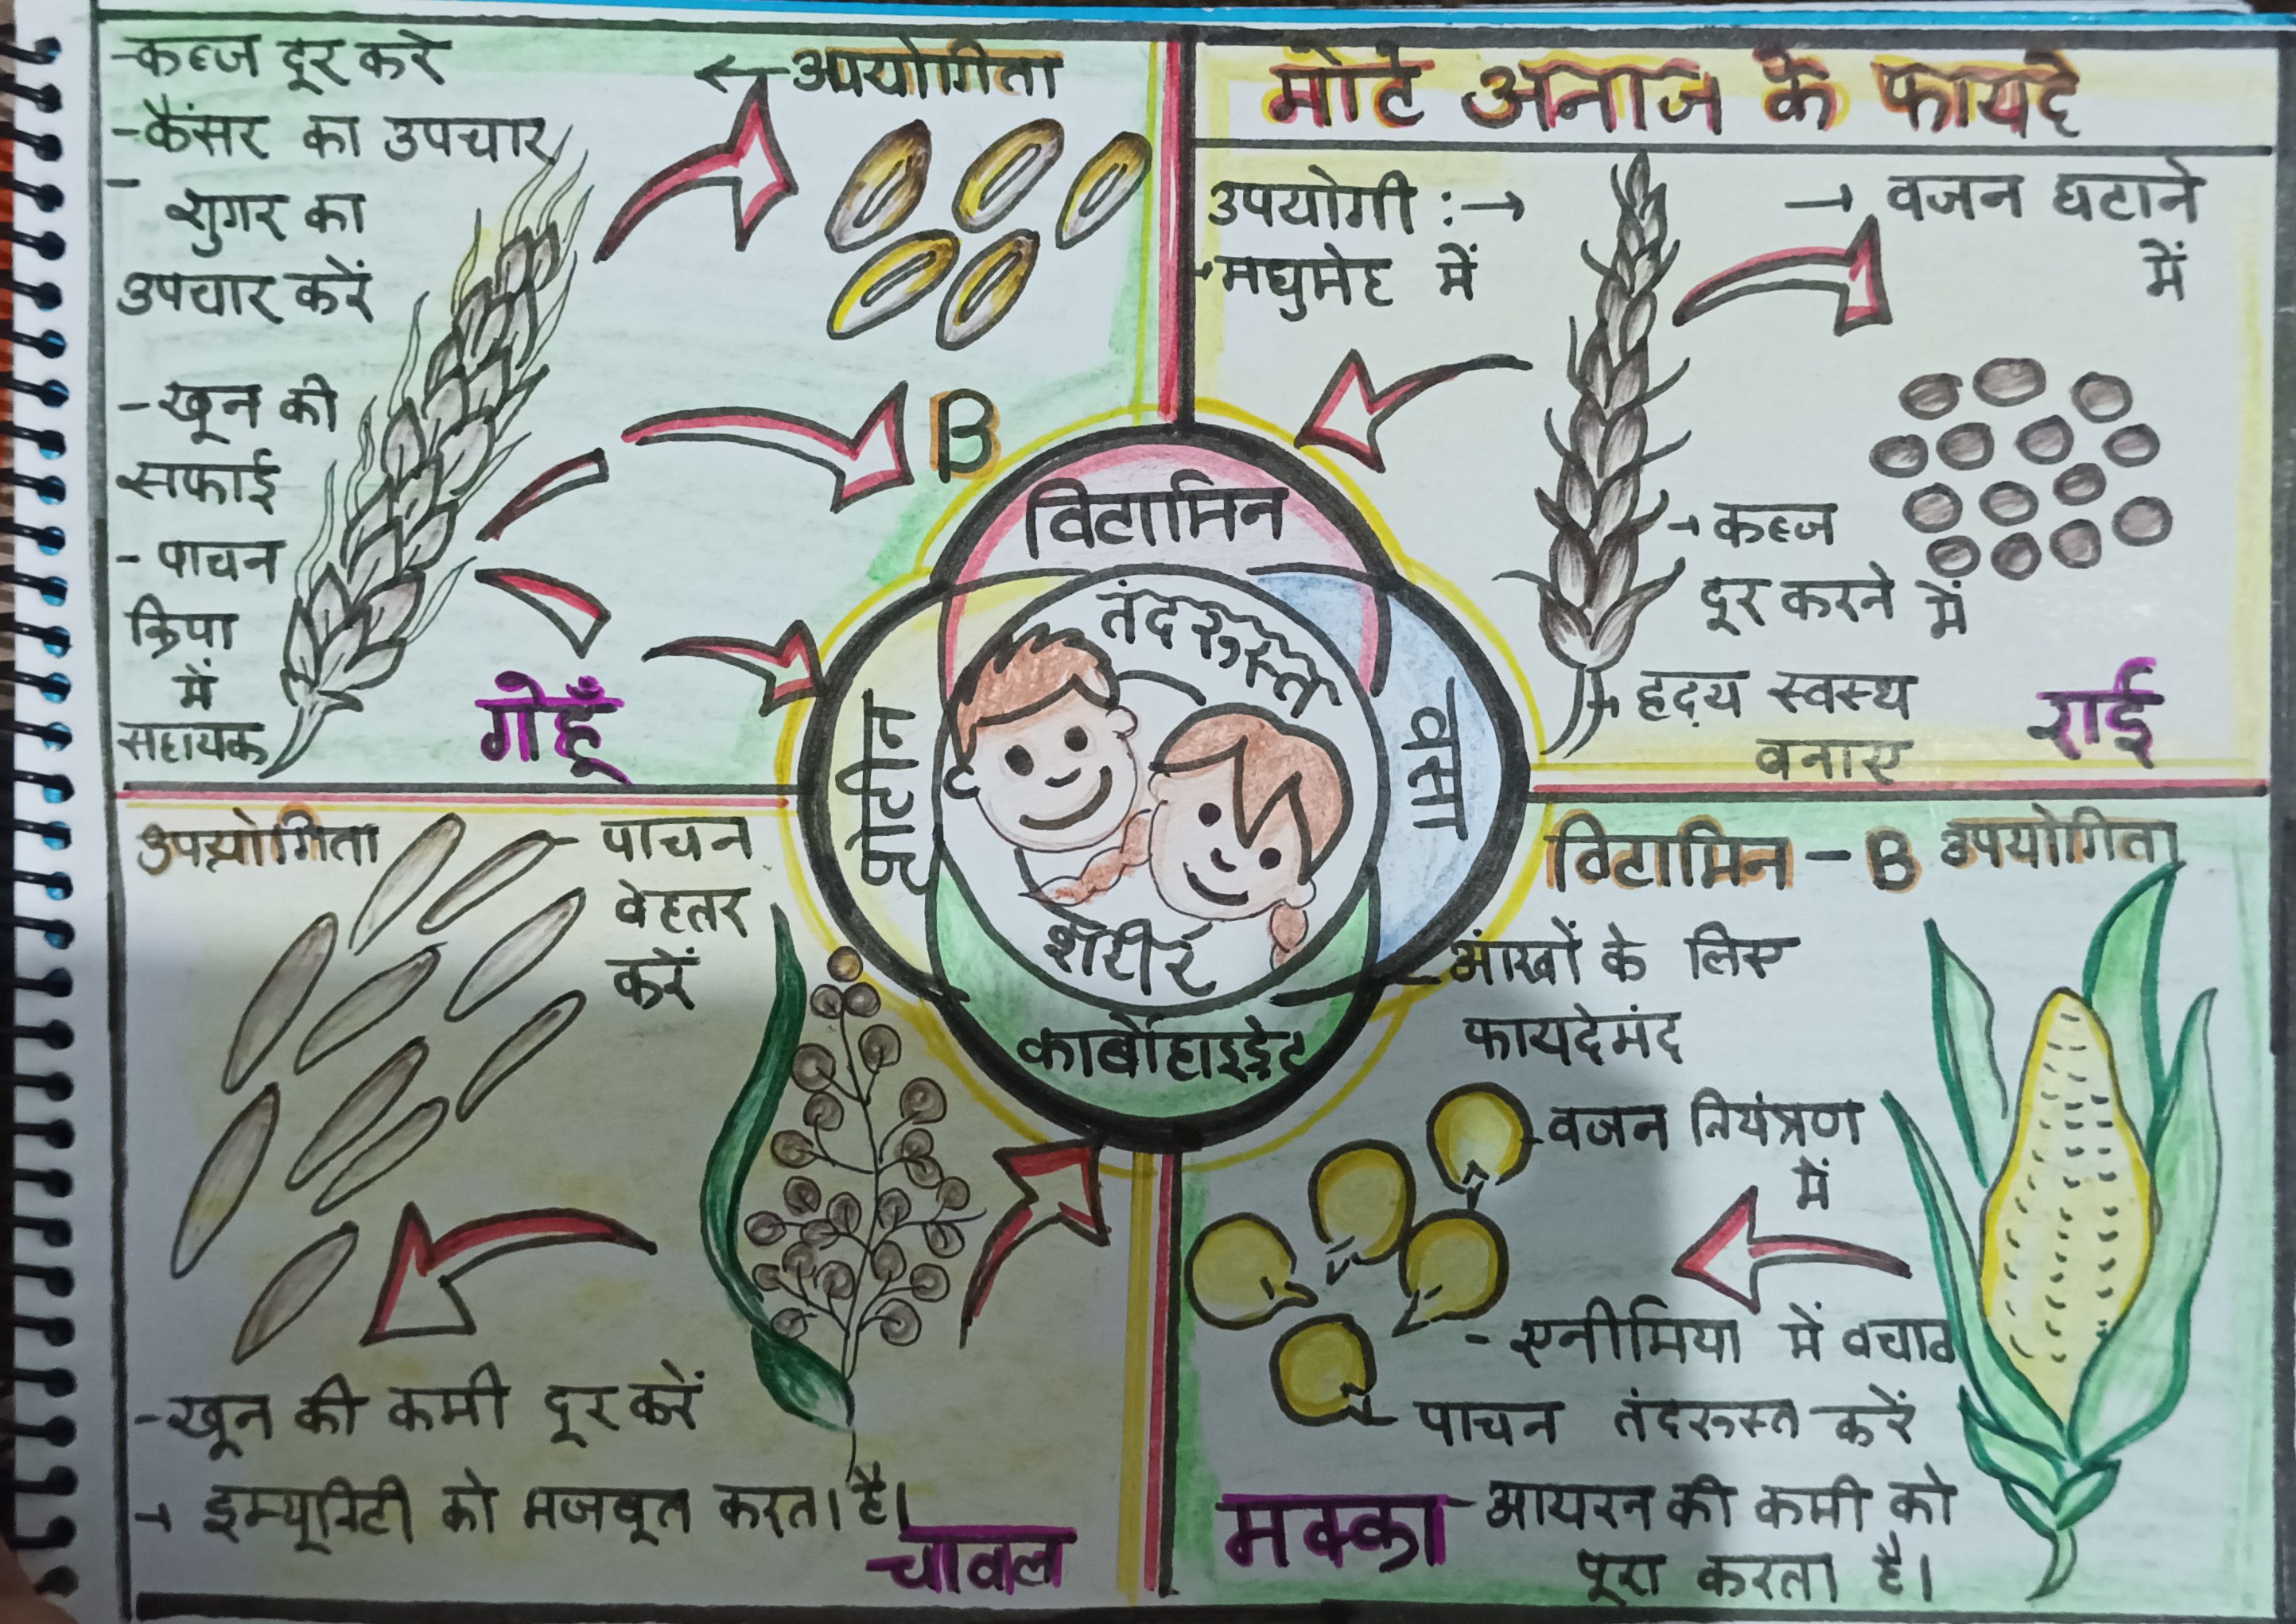 -कब्ज दूर करे
-कैंसर का उपचार
-
शुगर का
उपचार करें
-खून की
सफाई
-पाचन
क्रिपा
में
सहायक
← उपयोगिता
B
गेहूँ
मोटे अनाज के फायदे
उपयोगी :→
→मधुमेह में
→ वजन घटाने
में
→कब्ज
दूर करने में
→हृदय स्वस्थ
वनाए
राई
विटामिन
प्रोटीन
वसा
कार्बोहाइड्रेट
तंदरुस्त
शरीर
उपयोगिता
- पाचन
वेहतर
करें
-खून की कमी दूर करें
→ इम्यूनिटी को मजवूत करता है।
चावल
विटामिन - B उपयोगिता
-आंखों के लिए
फायदेमंद
-वजन नियंत्रण
में
- एनीमिया में वचाव
- पाचन तंदरुस्त करें
मक्का
-आयरन की कमी को
पूरा करता है।